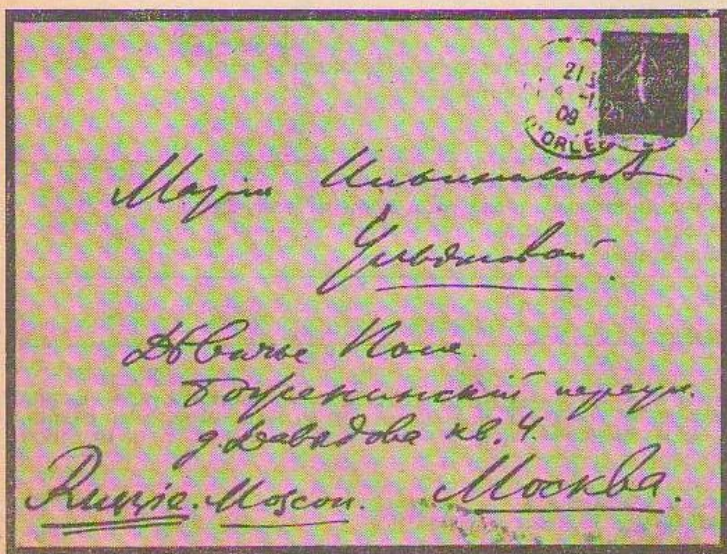 21
09
25
D'ORLE
Марiи Ильиничнѣ
Ульяновой.
Дѣвичье Поле.
Боженинскiй переул.
д. Давыдова кв. 4.
Russie. Moscou. Москва.